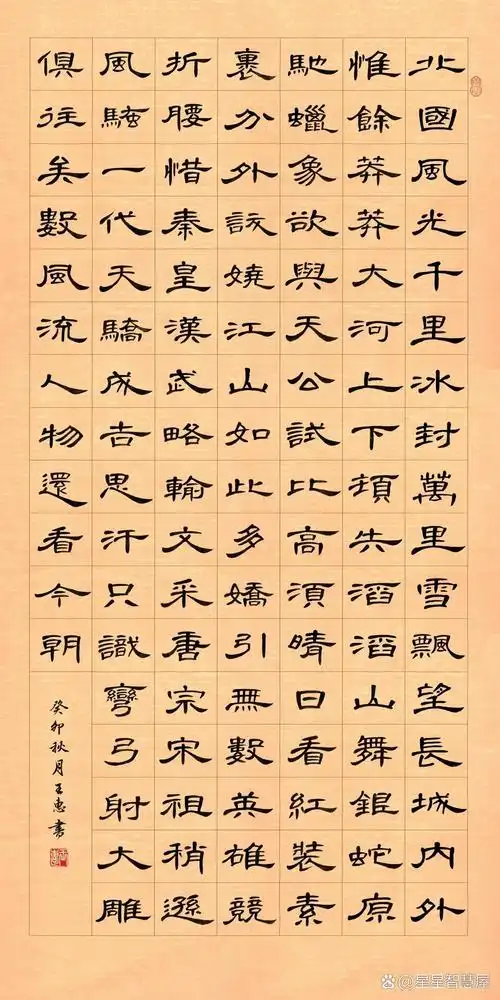 北國風光千里冰封萬里雪飄望長城內外
惟餘莽莽大河上下頓失滔滔山舞銀蛇原
馳蠟象欲與天公試比高須晴日看紅裝素
裹分外妖嬈江山如此多嬌引無數英雄競
折腰惜秦皇漢武略輸文采唐宗宋祖稍遜
風騷一代天驕成吉思汗只識彎弓射大雕
俱往矣數風流人物還看今朝
癸卯秋月王惠書
星星智慧屋